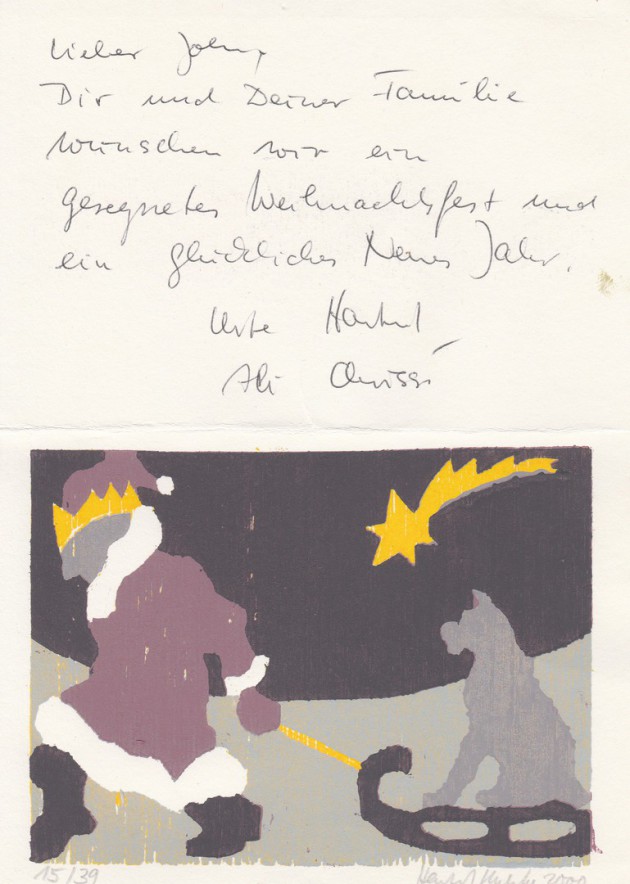 Lieber John,
Dir und Deiner Familie
wünschen wir ein
gesegnetes Weihnachtsfest und
ein glückliches Neues Jahr.
Ute
Ali
15/39 2000